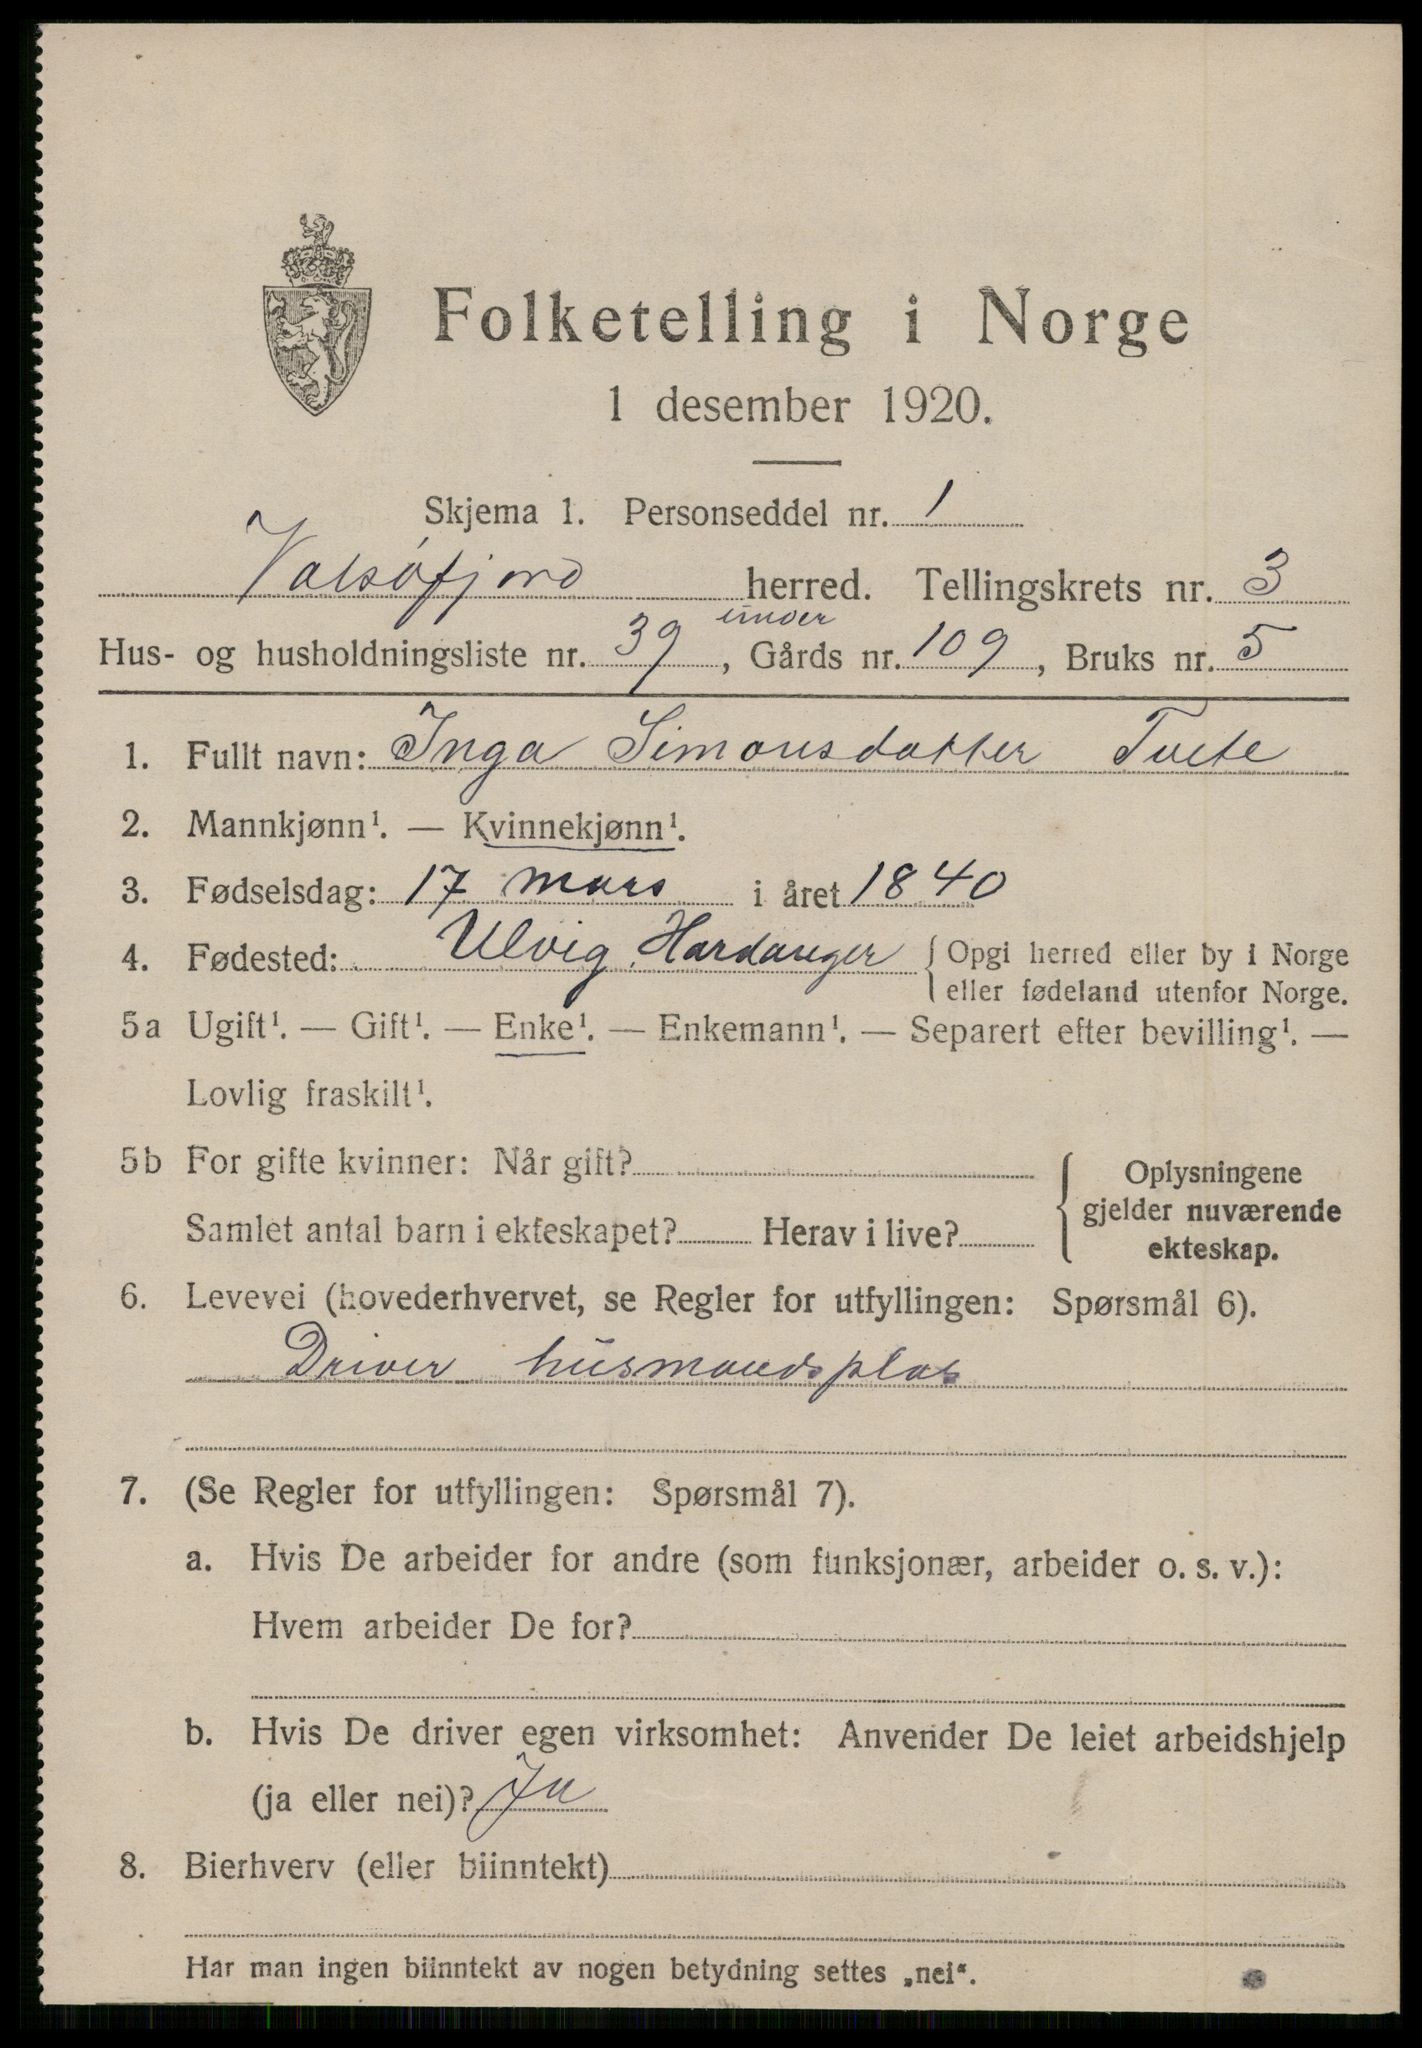 Folketelling i Norge
1 desember 1920.
Skjema 1. Personseddel nr. 1
Valsøfjord herred. Tellingskrets nr. 3
under
Hus- og husholdningsliste nr. 39, Gårds nr. 109, Bruks nr. 5
1. Fullt navn: Inga Simonsdatter Tvete
2. Mannkjønn¹. — Kvinnekjønn¹.
3. Fødselsdag: 17 mars i året 1840
4. Fødested: Ulvig, Hardanger { Opgi herred eller by i Norge
eller fødeland utenfor Norge.
5a Ugift¹. — Gift¹. — Enke¹. — Enkemann¹. — Separert efter bevilling¹. —
Lovlig fraskilt¹.
5b For gifte kvinner: Når gift?
Samlet antal barn i ekteskapet? Herav i live?
{ Oplysningene
gjelder nuværende
ekteskap.
6. Levevei (hovederhvervet, se Regler for utfyllingen: Spørsmål 6).
Driver husmandsplas
7. (Se Regler for utfyllingen: Spørsmål 7).
a. Hvis De arbeider for andre (som funksjonær, arbeider o. s. v.):
Hvem arbeider De for?
b. Hvis De driver egen virksomhet: Anvender De leiet arbeidshjelp
(ja eller nei)? Ja
8. Bierhverv (eller biinntekt)
Har man ingen biinntekt av nogen betydning settes „nei“.